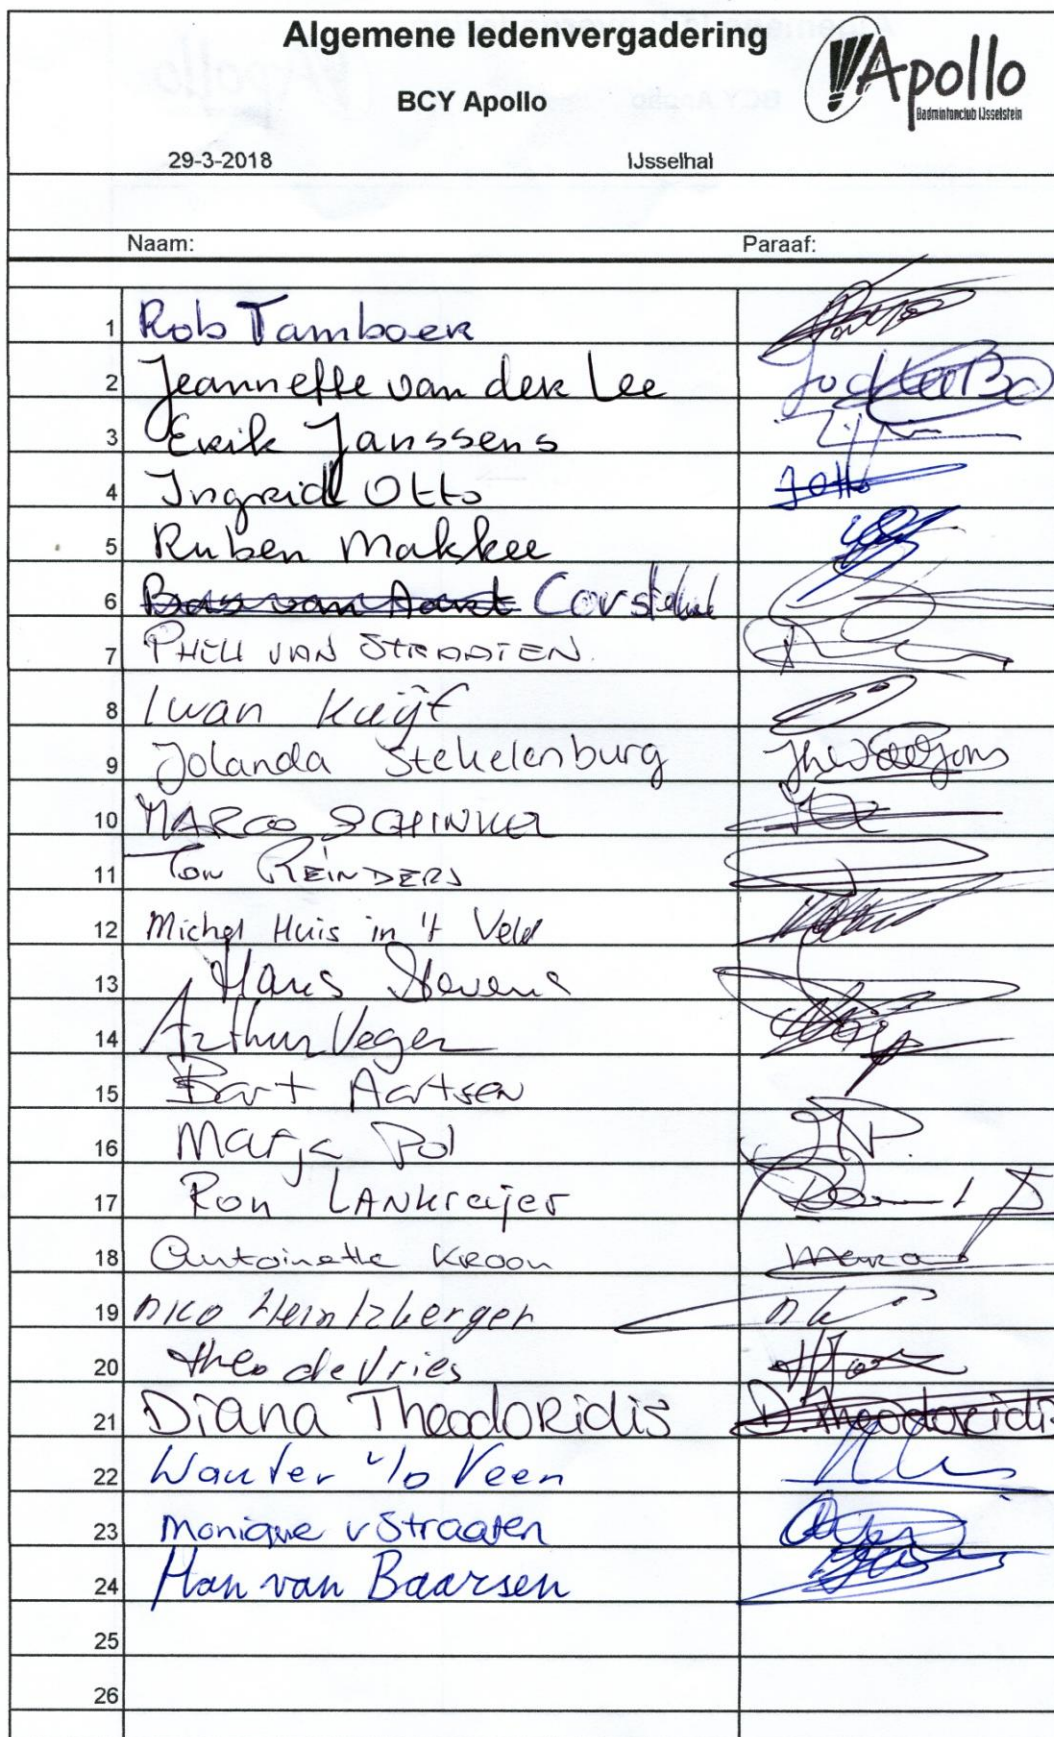 Algemene ledenvergadering
Apollo
Badmintonclub IJsselstein
BCY Apollo
29-3-2018 IJsselhal
Naam: Paraaf:
1 Rob Tamboer
2 Jeannette van der Lee
3 Erik Janssens
4 Ingrid Otto J Otto
5 Ruben Makkee
6 Bas van Aarst Cor
7 PHILL VAN STRAATEN.
8 Iwan Kuijt
9 Jolanda Stekelenburg
10 MARCO SCHINKEL
11 Ton REINDERS
12 Michel Huis in 't Veld
13 Hans Stevens
14 Arthur Veger
15 Bart Aartsen
16 Marja Pol
17 Ron LANKreijer
18 Antoinette KROON
19 Nico Heintzberger
20 theo de Vries
21 Diana Theodoridis D. Theodoridis
22 Wouter v/d Veen
23 Monique v Straaten
24 Han van Baarsen
25
26